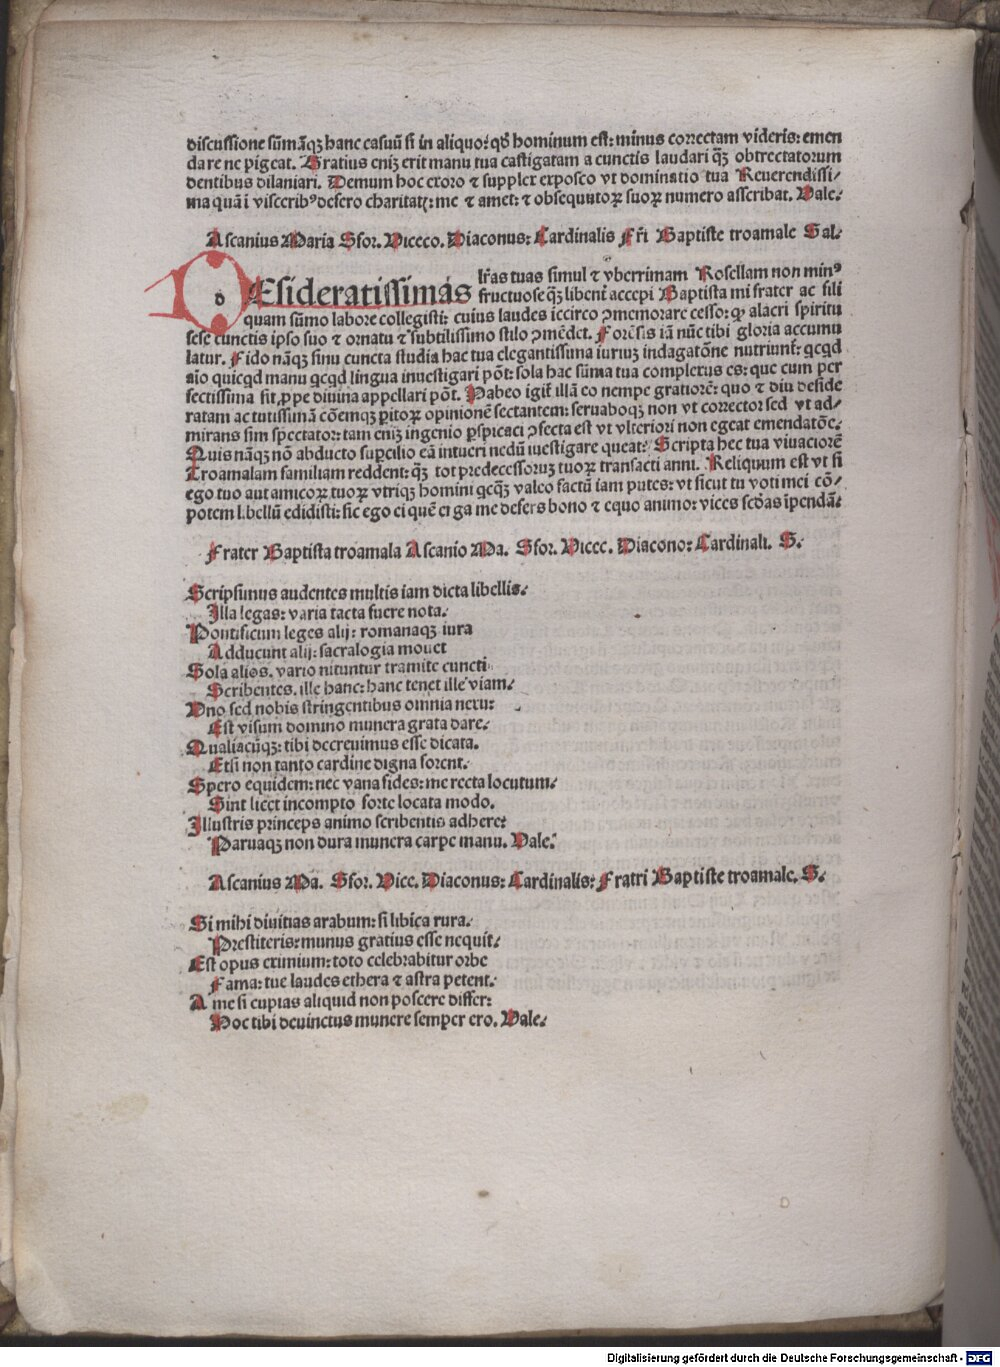 discussione sũmãqꝫ hanc casuũ si in aliquo: qđ hominum est: minus correctam videris: emen
dare ne pigeat. Gratius eniꝫ erit manu tua castigatam a cunctis laudari qꝫ̃ obtrectatorum
dentibus dilaniari. Demum hoc exoro ⁊ supplex exposco vt dominatio tua Reuerendissi/
ma quã ĩ visceribꝰ desero charitatꝭ: me ⁊ amet: ⁊ obsequutoꝝ suoꝝ numero asscribat. Uale.
Ascanius Maria Sfor. Uiceco. Diaconus: Cardinalis Fr̃i Baptiste troamale Sal.
d
DEsideratissimas lr̃as tuas simul ⁊ vberrimam Rosellam non minꝰ
fructuose qꝫ̃ libenť accepi Baptista mi frater ac fili
quam sũmo labore collegisti: cuius laudes iccirco ꝯmemorare cesso: qꝙ alacri spiritu
sese cunctis ipso suo ⁊ ornatu ⁊ subtilissimo stilo ꝯmẽdet. Forẽsis iã nũc tibi gloria accumu
latur. Fido nãqꝫ sinu cuncta studia hac tua elegantissima iuriuꝫ indagatõne nutriunť: qcqd
aĩo quicqd manu qcqd lingua inuestigari põt: sola hac sũma tua complexus es: que cum per
fectissima sit ꝓpe diuina appellari põt. Habeo igiť illã eo nempe gratiorẽ: quo ⁊ diu deside
ratam ac tutissimã cõemqꝫ ꝑitoꝝ opinionẽ sectantem: seruaboqꝫ non vt corrector sed vt ad/
mirans sim spectator: tam eniꝫ ingenio ꝑspicaci ꝯfecta est vt vlteriori non egeat emendatõe.
Quis nãqꝫ nõ abducto suꝑcilio eã intueri nedũ iuestigare queat? Scripta hec tua viuaciorẽ
Troamalam familiam reddent: qꝫ̃ tot predecessoruꝫ tuoꝝ transacti anni. Reliquum est vt si
ego tuo aut amicoꝝ tuoꝝ vtriqꝫ homini qcqꝫ̃ valeo factũ iam putes: vt sicut tu voti mei cõ/
potem l.bellũ edidisti: sic ego ei quẽ erga me defers bono ⁊ equo animo: vices scďas ĩpendã.
Frater Baptista troamala Ascanio Ma. Sfor. Uicec. Diacono: Cardinali. S.
Scripsimus audentes multis iam dicta libellis.
Illa legas: varia tacta fuere nota.
Pontificum leges alij: romanaqꝫ iura
Adducunt alij: sacralogia mouet
Sola alios. vario nituntur tramite cuncti
Scribentes. ille hanc: hanc tenet ille viam.
Uno sed nobis stringentibus omnia nexu:
Est visum domino munera grata dare.
Qualiacũqꝫ: tibi decreuimus esse dicata.
Etsi non tanto cardine digna forent.
Spero equidem: nec vana fides: me recta locutum.
Sint licet incompto forte locata modo.
Illustris princeps animo scribentis adhere:
Paruaqꝫ non dura munera carpe manu. Uale.
Ascanius Ma. Sfor. Uicc. Diaconus: Cardinalis: Fratri Baptiste troamale. S.
Si mihi diuitias arabum: si libica rura.
Prestiteris: munus gratius esse nequit.
Est opus eximium: toto celebrabitur orbe
Fama: tue laudes ethera ⁊ astra petent.
A me si cupias aliquid non poscere differ:
Hoc tibi deuinctus munere semper ero. Uale.
Digitalisierung gefördert durch die Deutsche Forschungsgemeinschaft - DFG